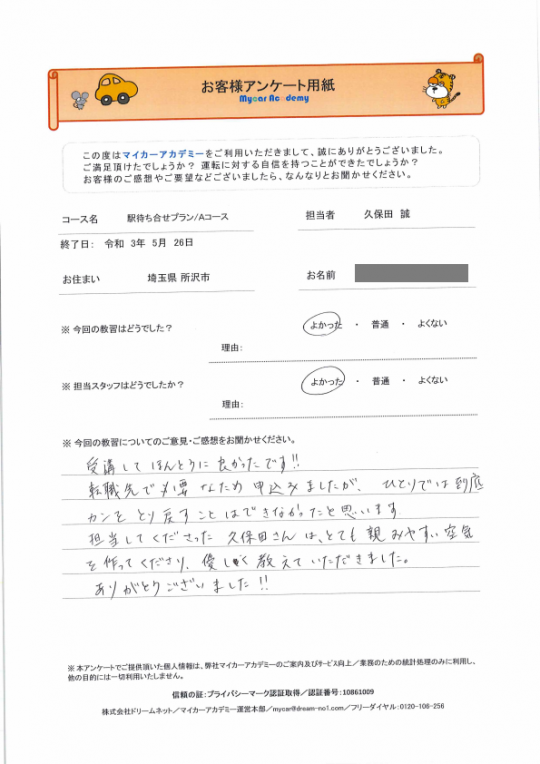 お客様アンケート用紙
Mycar Academy
この度はマイカーアカデミーをご利用いただきまして、誠にありがとうございました。
ご満足頂けたでしょうか? 運転に対する自信を持つことができたでしょうか?
お客様のご感想やご要望などございましたら、なんなりとお聞かせください。
コース名 駅待ち合せプラン/Aコース 担当者 久保田 誠
終了日: 令和 3年 5月 26日
お住まい 埼玉県 所沢市 お名前
※ 今回の教習はどうでした? よかった ・ 普通 ・ よくない
理由:
※ 担当スタッフはどうでしたか? よかった ・ 普通 ・ よくない
理由:
※ 今回の教習についてのご意見・ご感想をお聞かせください。
受講してほんとうに良かったです!!
転職先で必要なため申込みましたが、ひとりでは到底
カンをとり戻すことはできなかったと思います
担当してくださった久保田さんは、とても親みやすい空気
を作ってくださり、優しく教えていただきました。
ありがとうございました!!
※ 本アンケートでご提供頂いた個人情報は、弊社マイカーアカデミーのご案内及びサービス向上/業務のための統計処理のみに利用し、
他の目的には一切利用いたしません。
信頼の証:プライバシーマーク認証取得/認証番号:10861009
株式会社ドリームネット/マイカーアカデミー運営本部/mycar@dream-no1.com/フリーダイヤル:0120-106-256